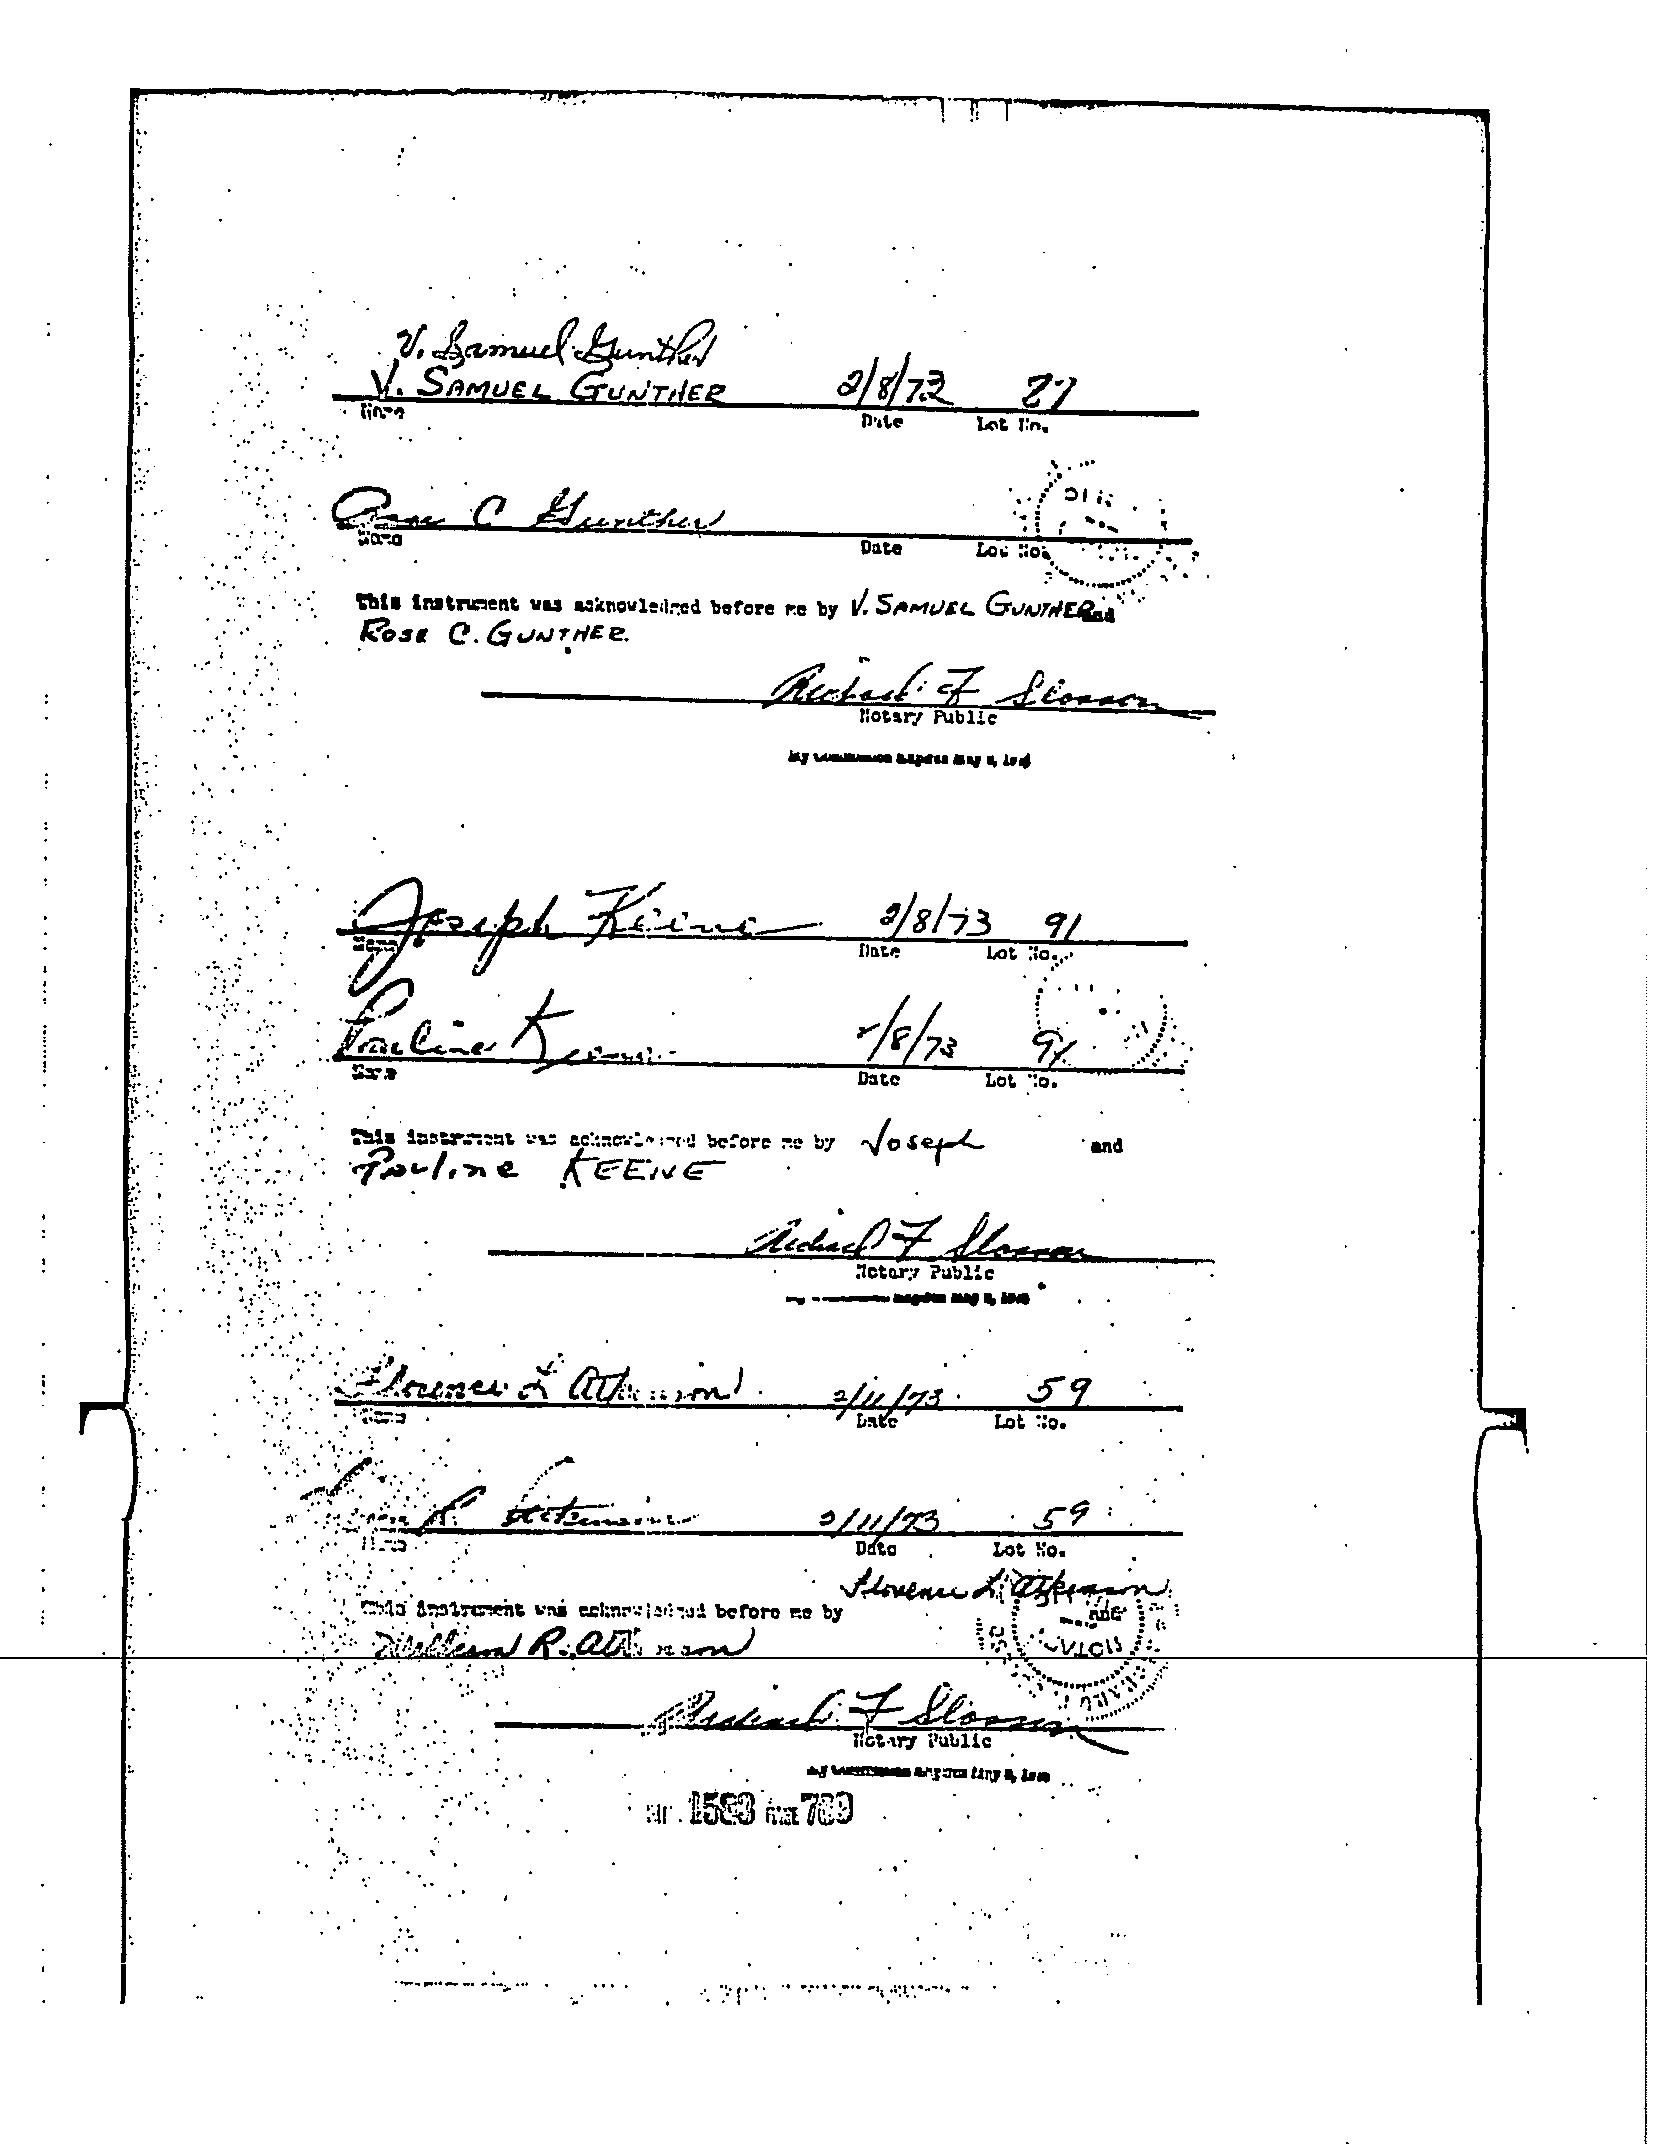 V. Samuel Gunther
V. SAMUEL GUNTHER 2/8/73 27
Name Date Lot No.
Rose C Gunther
Name Date Lot No.
This instrument was acknowledged before me by V. SAMUEL GUNTHER and
ROSE C. GUNTHER.
Michael F Slosson
Notary Public
My Commission Expires May
Joseph Keene 2/8/73 91
Name Date Lot No.
Pauline Keene 2/8/73 91
Name Date Lot No.
This instrument was acknowledged before me by Joseph and
Pauline KEENE
Michael F Slosson
Notary Public
Expires May
Florence L Atkinson 2/11/73 59
Name Date Lot No.
R. Atkinson 2/11/73 59
Name Date Lot No.
Florence L. Atkinson
This instrument was acknowledged before me by and
William R. Atkinson
Michael F Slosson
Notary Public
My Commission Expires May